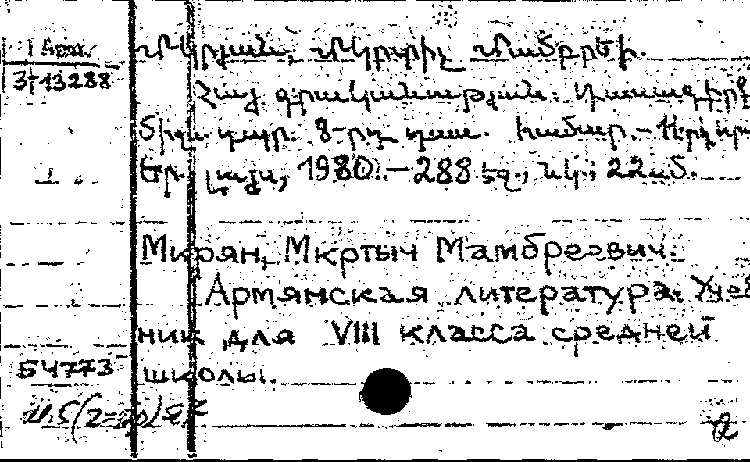 Մկրյան, Մկրտիչ Մամբրեի.
Հայ գրականություն. Դասագիրք
միջն. դպր. 8-րդ դաս. համար.-
Եր., Լույս, 1980.-288 էջ., նկ.; 22սմ.
Мкрян, Мкртыч Мамбреевич.
Армянская литература: Учеб
ник для VIII класса средней
школы.
54773